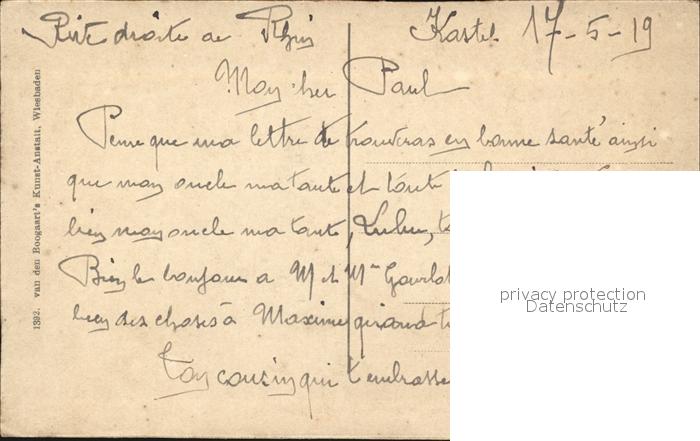 Rive droite de Rhin Kastel 17-5-19
Mon cher Paul
que ma lettre te trouveras en bonne santé ainsi
que mon oncle ma tante et toute
bien mon oncle ma tante, Lulu,
Bien le bonjour a M et Mme
bien des choses à Maxime
Ton cousin qui t'embrasse
1392. van den Boogaart's Kunst-Anstalt, Wiesbaden
privacy protection
Datenschutz